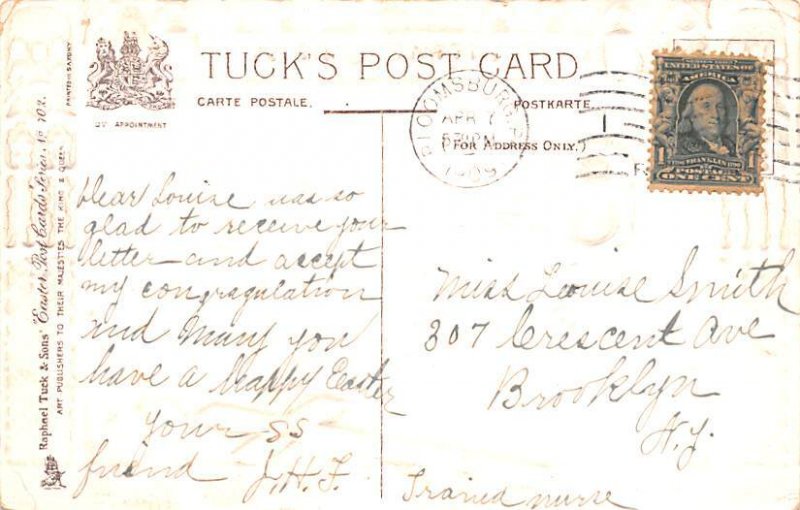 TUCK'S POST CARD
CARTE POSTALE.
POSTKARTE.
(FOR ADDRESS ONLY.)
BY APPOINTMENT
PRINTED IN SAXONY
Raphael Tuck & Sons' "Easter" Post Cards Series No
ART PUBLISHERS TO THEIR MAJESTIES THE KING & QUEEN
BLOOMSBURG, PA
APR 7
UNITED STATES OF
AMERICA
FRANKLIN
POSTAGE
1 ONE CENT 1
Dear Louise was so
glad to receive your
letter and accept
my congragulation
and Many you
have a happy Easter
your SS
friend J. H. F.
Miss Louise Smith
307 Crescent Ave
Brooklyn
N.Y.
Trained nurse